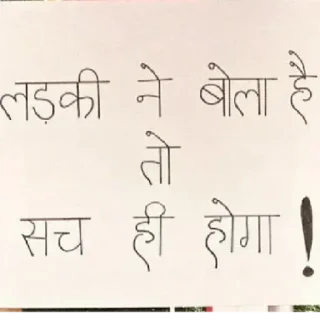 लड़की ने बोला है
तो
सच ही होगा !